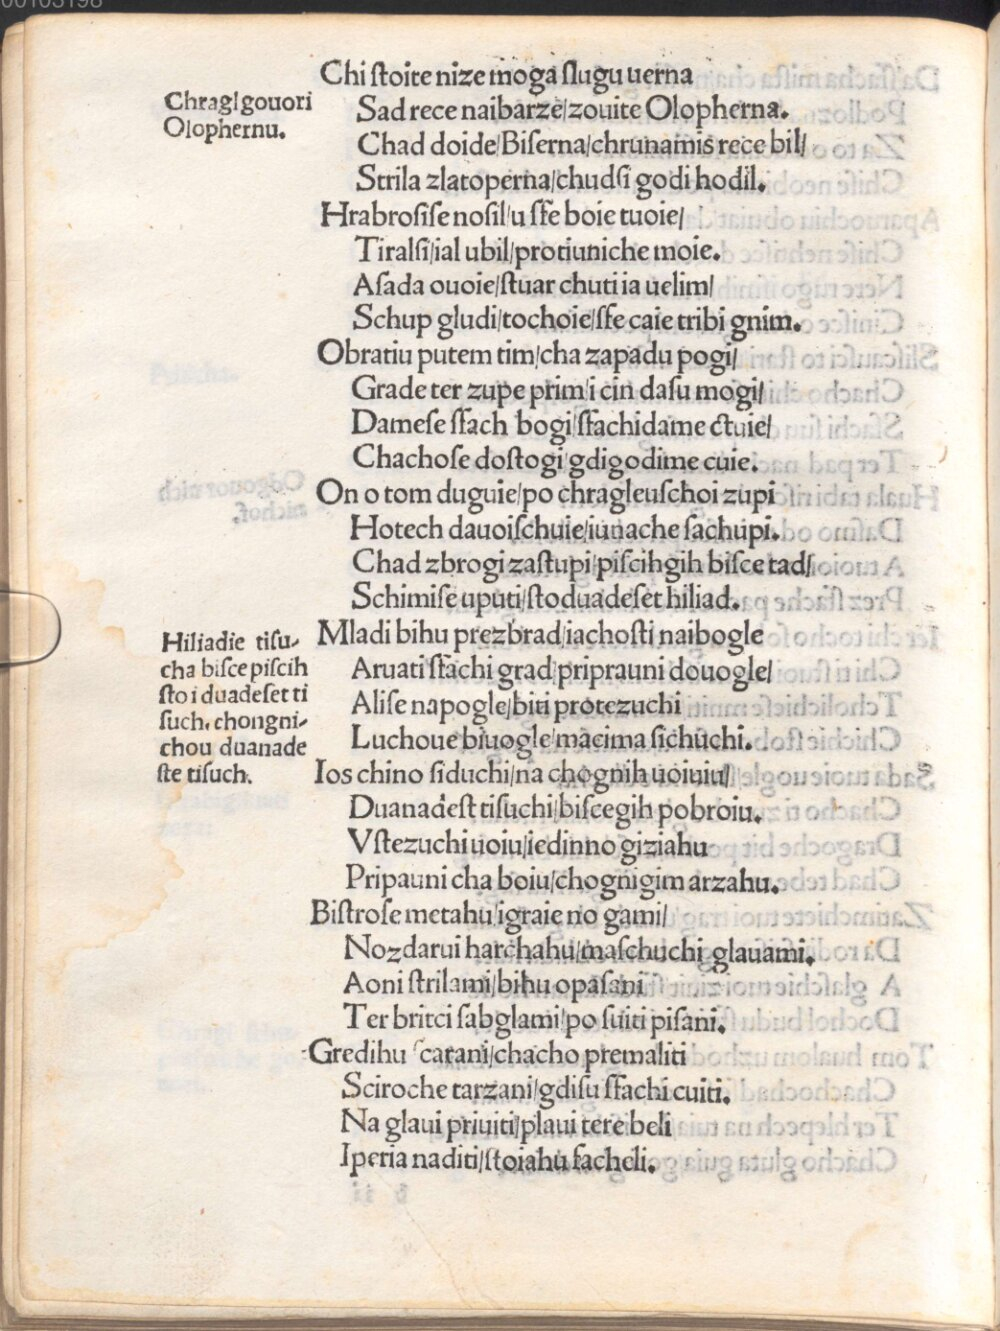 00103198
Chi ſtoite nize moga ſlugu uerna
Chragl gouori
Olophernu.
Sad rece naibarze/zouite Olopherna.
Chad doide/Biſerna/chrunamis rece bil/
Strila zlatoperna/chudſi godi hodil.
Hrabroſiſe noſil/u ſſe boie tuoie/
Tiralſi/ial ubil/protiuniche moie.
Aſada ouoie/ſtuar chuti ia uelim/
Schup gludi/tochoie/ſſe caie tribi gnim.
Obratiu putem tim/cha zapadu pogi/
Grade ter zupe prim/i cin daſu mogi/
Dameſe ſſach bogi/ſſachidame ctuie/
Chachoſe doſtogi/gdigodime cuie.
On o tom duguie/po chragleuſchoi zupi
Hotech dauoiſchuie/iunache ſachupi.
Chad zbrogi zaſtupi/piſcihgih biſce tad/
Schimiſe uputi/ſtoduadeſet hiliad.
Hiliadie tiſu-
cha biſce piſcih
ſto i duadeſet ti
ſuch, chongni-
chou duanade
ſte tiſuch.
Mladi bihu prezbrad/iachoſti naibogle
Aruati ſſachi grad/priprauni douogle/
Aliſe napogle/biti protezuchi
Luchoue biuogle/macima ſichuchi.
Ios chino ſiduchi/na chognih uoiuiu/
Duanadeſt tiſuchi/biſcegih pobroiu.
Vſtezuchi uoiu/iedinno giziahu
Pripauni cha boiu/chognigim arzahu.
Biſtroſe metahu/igraie no gami/
Nozdarui harchahu/maſchuchi glauami.
Aoni ſtrilami/bihu opaſani
Ter britci ſabglami/po ſuiti piſani.
Gredihu catani/chacho premaliti
Sciroche tarzani/gdiſu ſſachi cuiti.
Na glaui priuiti/plaui tere beli
Iperia naditi/ſtoiahu ſacheli.